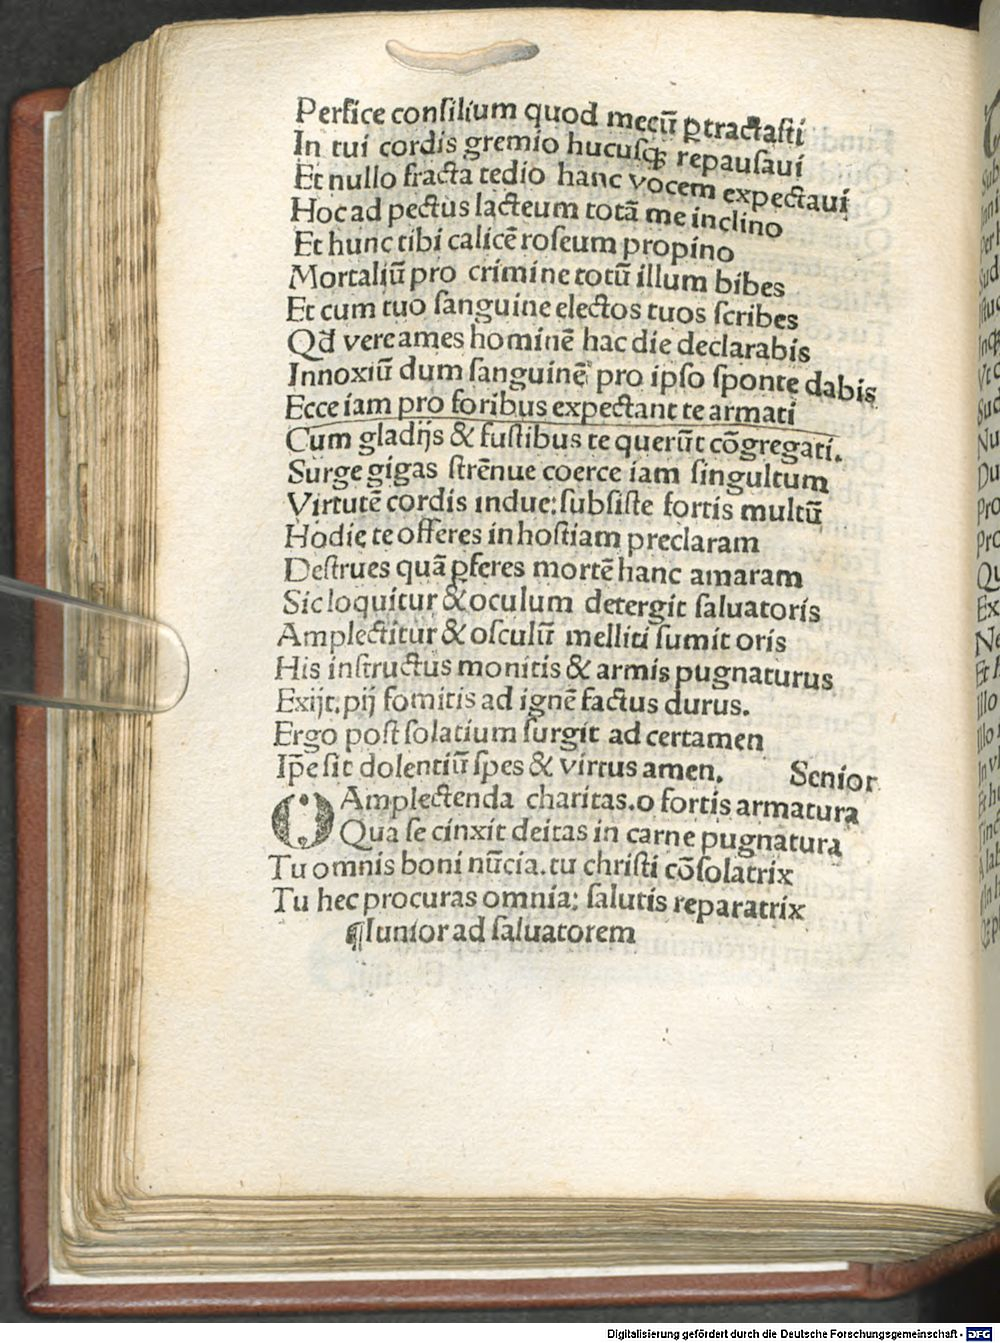 Perfice conſilium quod mecū ꝑtractaſti
In tui cordis gremio hucuſqꝫ repauſaui
Et nullo fracta tedio hanc vocem expectaui
Hoc ad pectus lacteum totā me inclino
Et hunc tibi calicē roſeum propino
Mortaliū pro crimine totū illum bibes
Et cum tuo ſanguine electos tuos ſcribes
Qd̄ vere ames hominē hac die declarabis
Innoxiū dum ſanguinē pro ipſo ſponte dabis
Ecce iam pro foribus expectant te armati
Cum gladijs & fuſtibus te querūt cōgregati.
Surge gigas ſtrēnue coerce iam ſingultum
Virtutē cordis indue: ſubſiſte fortis multū
Hodie te offeres in hoſtiam preclaram
Deſtrues quā ꝑferes mortē hanc amaram
Sic loquitur & oculum detergit ſaluatoris
Amplectitur & oſculū melliti ſumit oris
His inſtructus monitis & armis pugnaturus
Exijt: pij fomitis ad ignē factus durus.
Ergo poſt ſolatium ſurgit ad certamen
Ip̄e ſit dolentiū ſpes & virtus amen.
Senior
O Amplectenda charitas. o fortis armatura
Qua ſe cinxit deitas in carne pugnatura
Tu omnis boni nūcia. tu chriſti cōſolatrix
Tu hec procuras omnia: ſalutis reparatrix
¶Iunior ad ſaluatorem
Digitalisierung gefördert durch die Deutsche Forschungsgemeinschaft - DFG